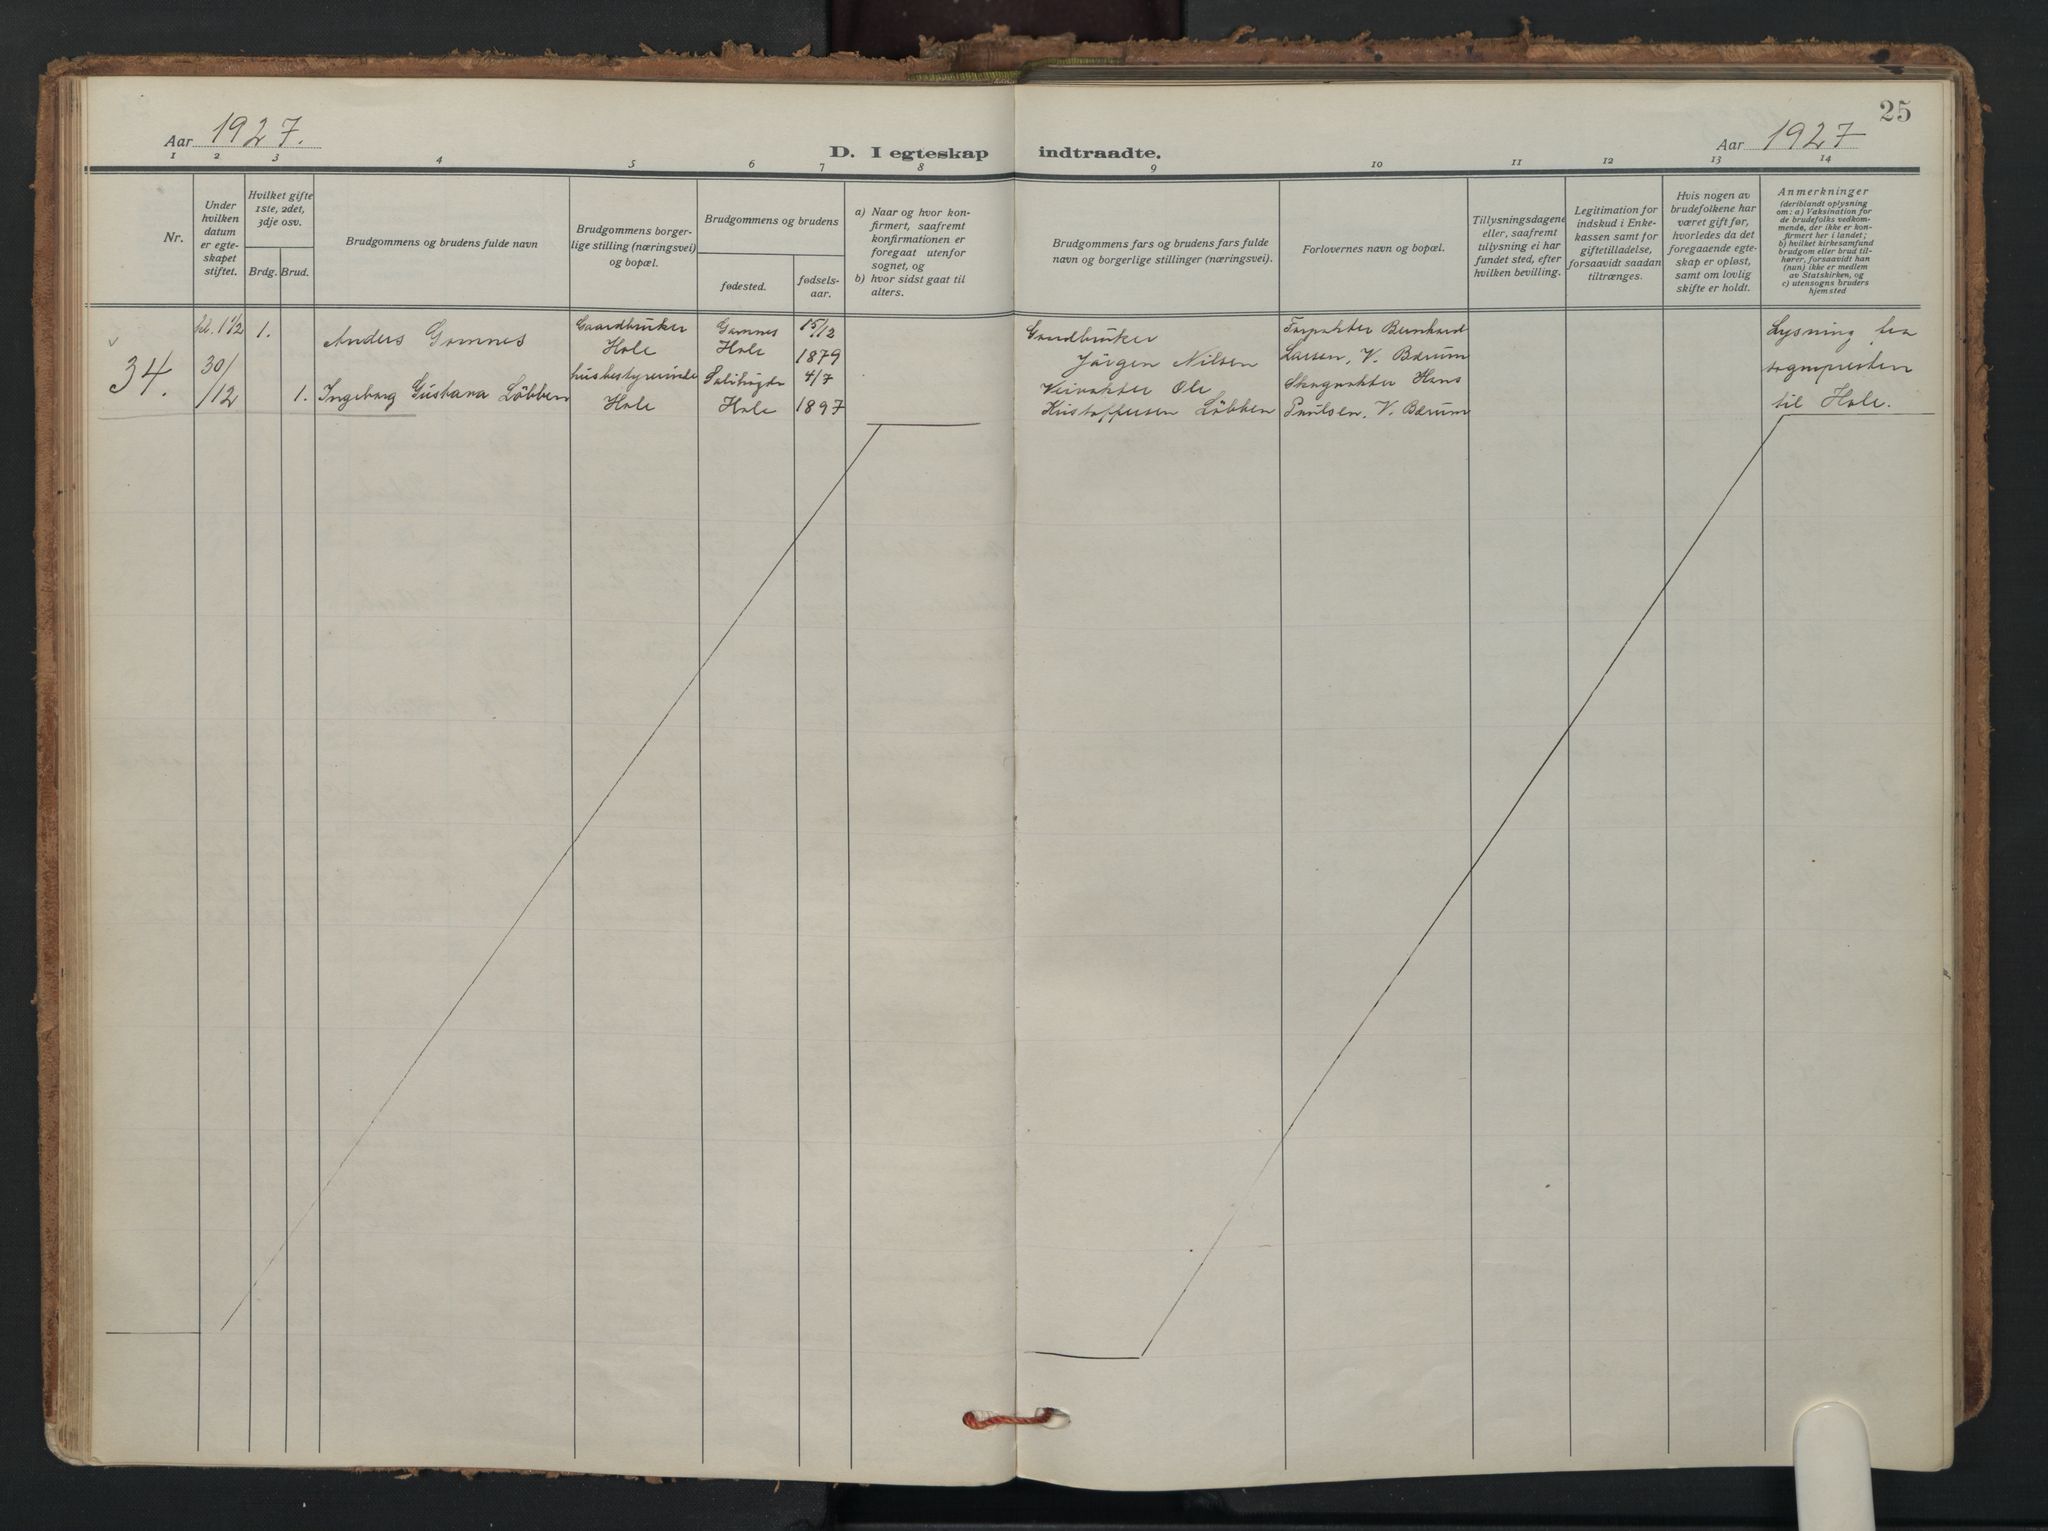 25
Aar 1927.
D. I egteskap indtraadte.
Aar 1927
1 2 3 4 5 6 7 8 9 10 11 12 13 14
Nr.
Under
hvilken
datum
er egte-
skapet
stiftet.
Hvilket gifte
1ste, 2det,
3dje osv.
Brdg. Brud.
Brudgommens og brudens fulde navn
Brudgommens borger-
lige stilling (næringsvei)
og bopæl.
Brudgommens og brudens
fødested.
fødsels-
aar.
a) Naar og hvor kon-
firmert, saafremt
konfirmationen er
foregaat utenfor
sognet, og
b) hvor sidst gaat til
alters.
Brudgommens fars og brudens fars fulde
navn og borgerlige stillinger (næringsvei).
Forlovernes navn og bopæl.
Tillysningsdagene
eller, saafremt
tillysning ei har
fundet sted, efter
hvilken bevilling.
Legitimation for
indskud i Enke-
kassen samt for
giftetilladelse,
forsaavidt saadan
tiltrænges.
Hvis nogen av
brudefolkene har
været gift før,
hvorledes da det
foregaaende egte-
skap er opløst,
samt om lovlig
skifte er holdt.
Anmerkninger
(deriblandt oplysning
om: a) Vaksination for
de brudefolks vedkom-
mende, der ikke er kon-
firmert her i landet;
b) hvilket kirkesamfund
brudgom eller brud til-
hører, forsaavidt han
(hun) ikke er medlem
av Statskirken, og
c) utensogns bruders
hjemsted
34.
kl. 1 1/2
30/
/12
1.
1.
Anders Gomnes
Ingeborg Gustava Löbben
Gaardbruker
Hole
husbestyrerinde
Hole
Gomnes
Hole
Hole
15/2
1879
4/7
1897
Gaardbruker
Jörgen Nilsen
Veivokter Ole
Kristoffersen Löbben
Bernhard
Larsen, V. Bærum
Skogvokter Hans
Paulsen, V. Bærum
Lysning fra
sognepresten
til Hole.